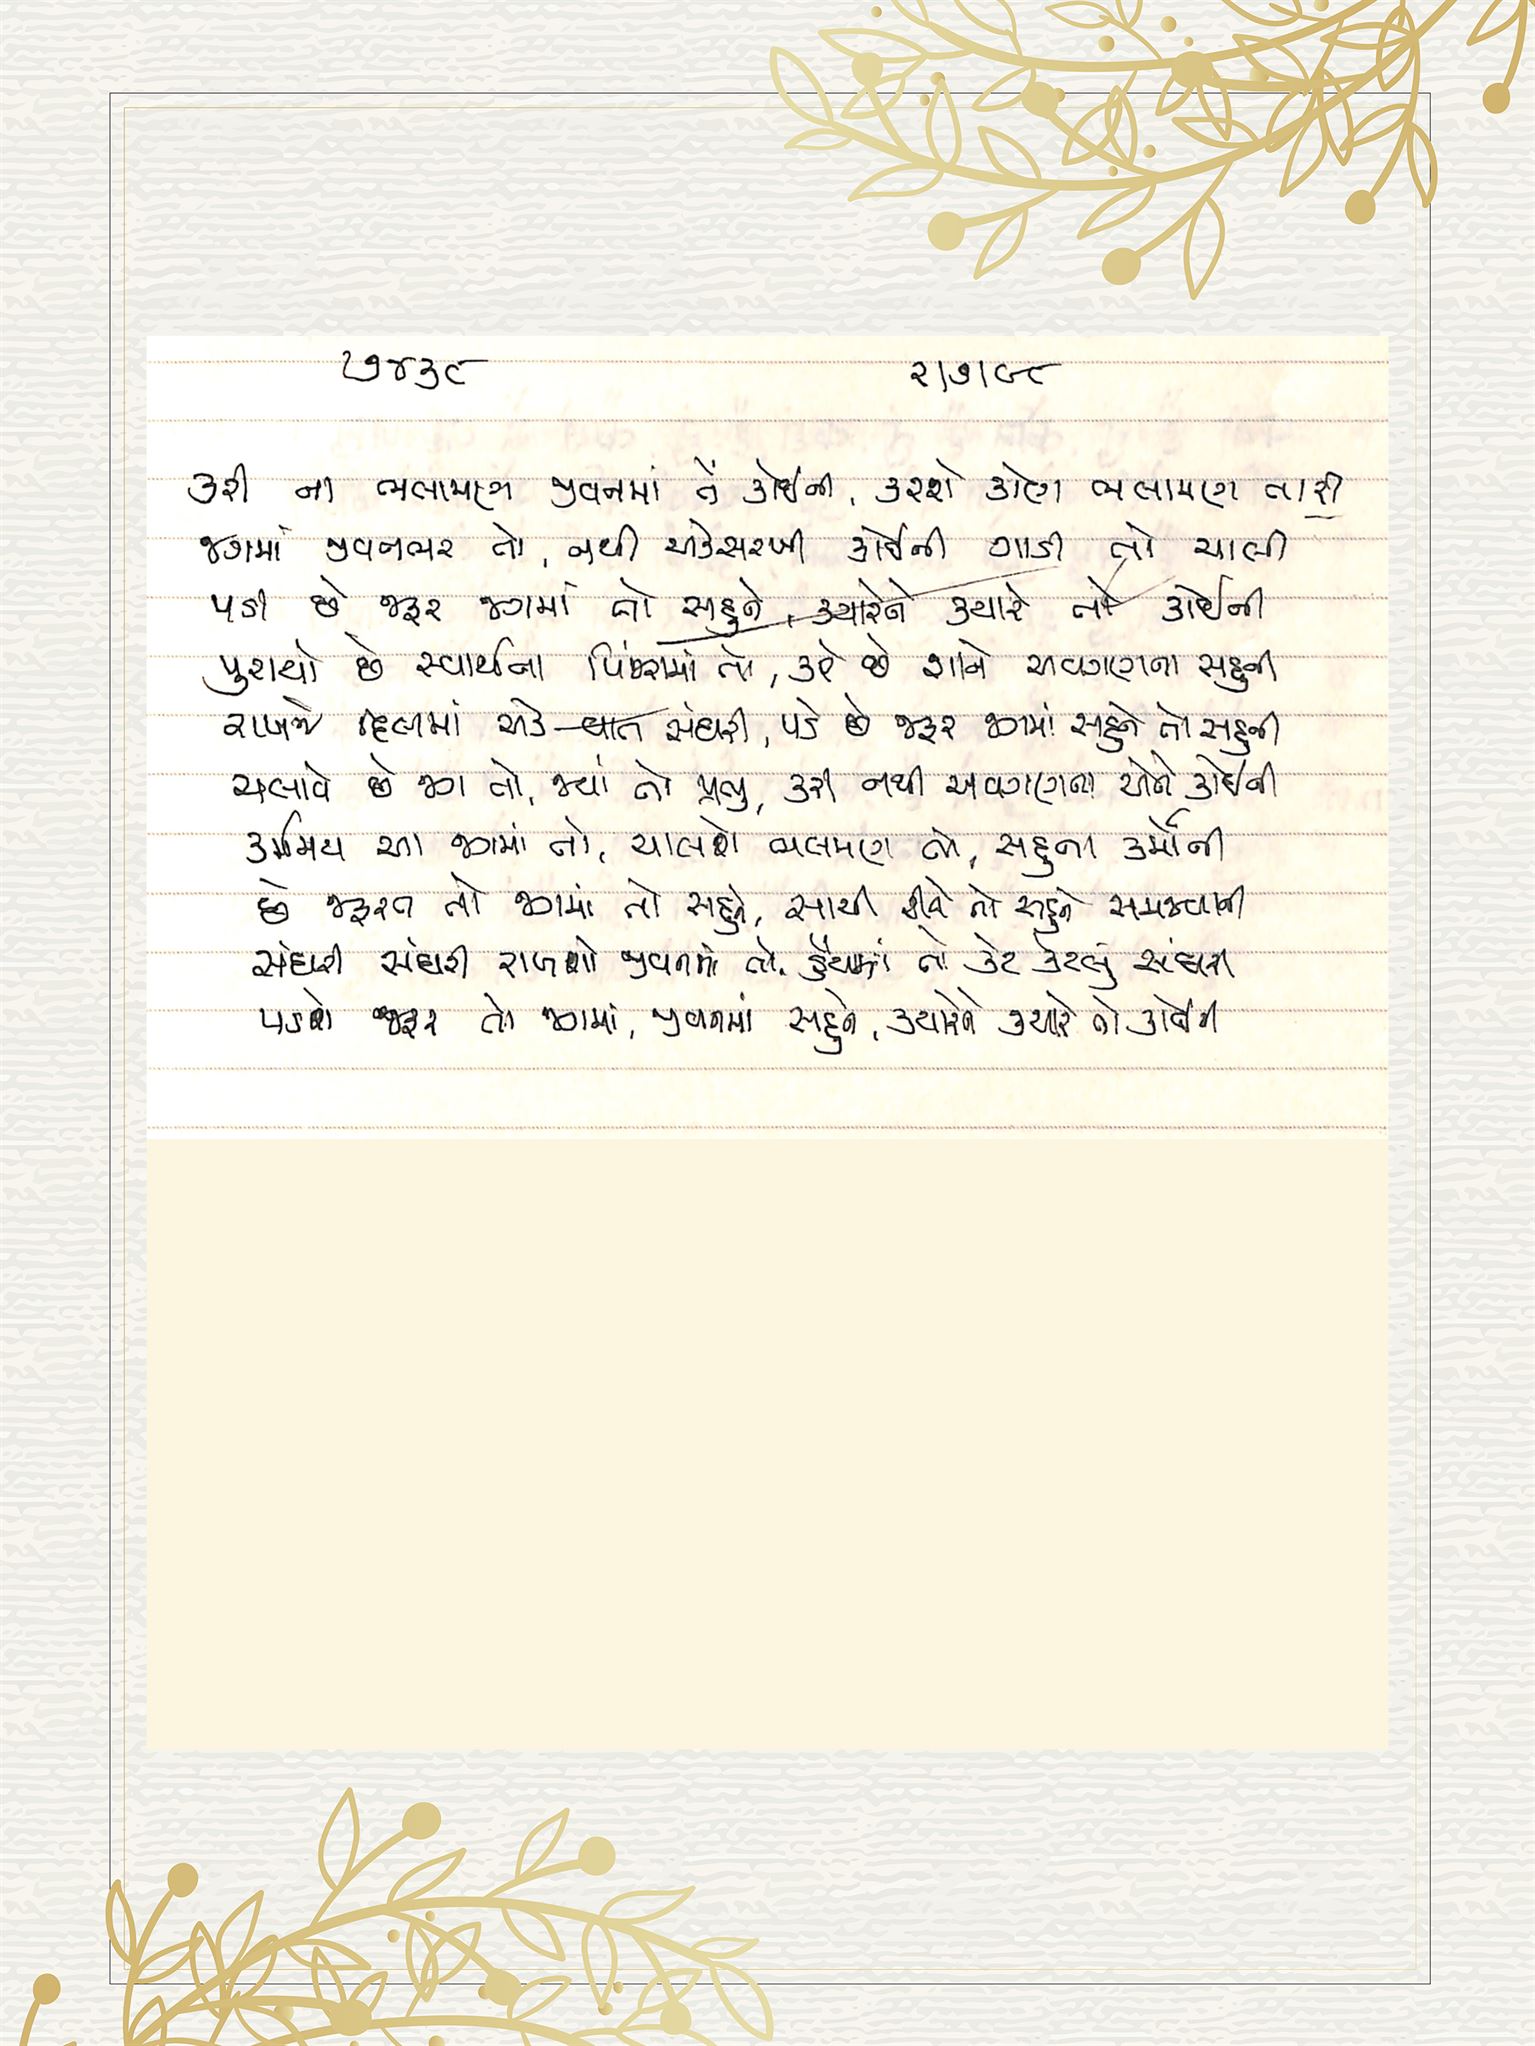 ૭૪૩૯ ૨/૭/૯૮
કરી ના ભલામણ જીવનમાં તેં કોઈની, કરશે કોણ ભલામણ તારી
જગમાં જીવનભર તો, નથી એકસરખી કોઈની ગાડી તો ચાલી
પડી છે જરૂર જગમાં તો સહુને, ક્યારેને ક્યારે તો કોઈની
પુરાયો છે સ્વાર્થના પિંજરામાં તો, કરે છે શાને અવગણના સહુની
રાખજે દિલમાં એક વાત સંઘરી, પડે છે જરૂર જગમાં સહુને તો સહુની
ચલાવે છે જગ તો, જ્યાં તો પ્રભુ, કરી નથી અવગણના એને કોઈની
કર્મમય આ જગમાં તો, ચાલશે ભલમણ તો, સહુના કર્મોની
છે જરૂરત તો જગમાં તો સહુને, સાચી રીતે તો સહુને સમજવાની
સંઘરી સંઘરી રાખશો જીવનમાં તો, હૈયામાં તો કેટ કેટલું સંઘરી
પડશે જરૂર તો જગમાં, જીવનમાં સહુને, ક્યારેને ક્યારે તો કોઈની